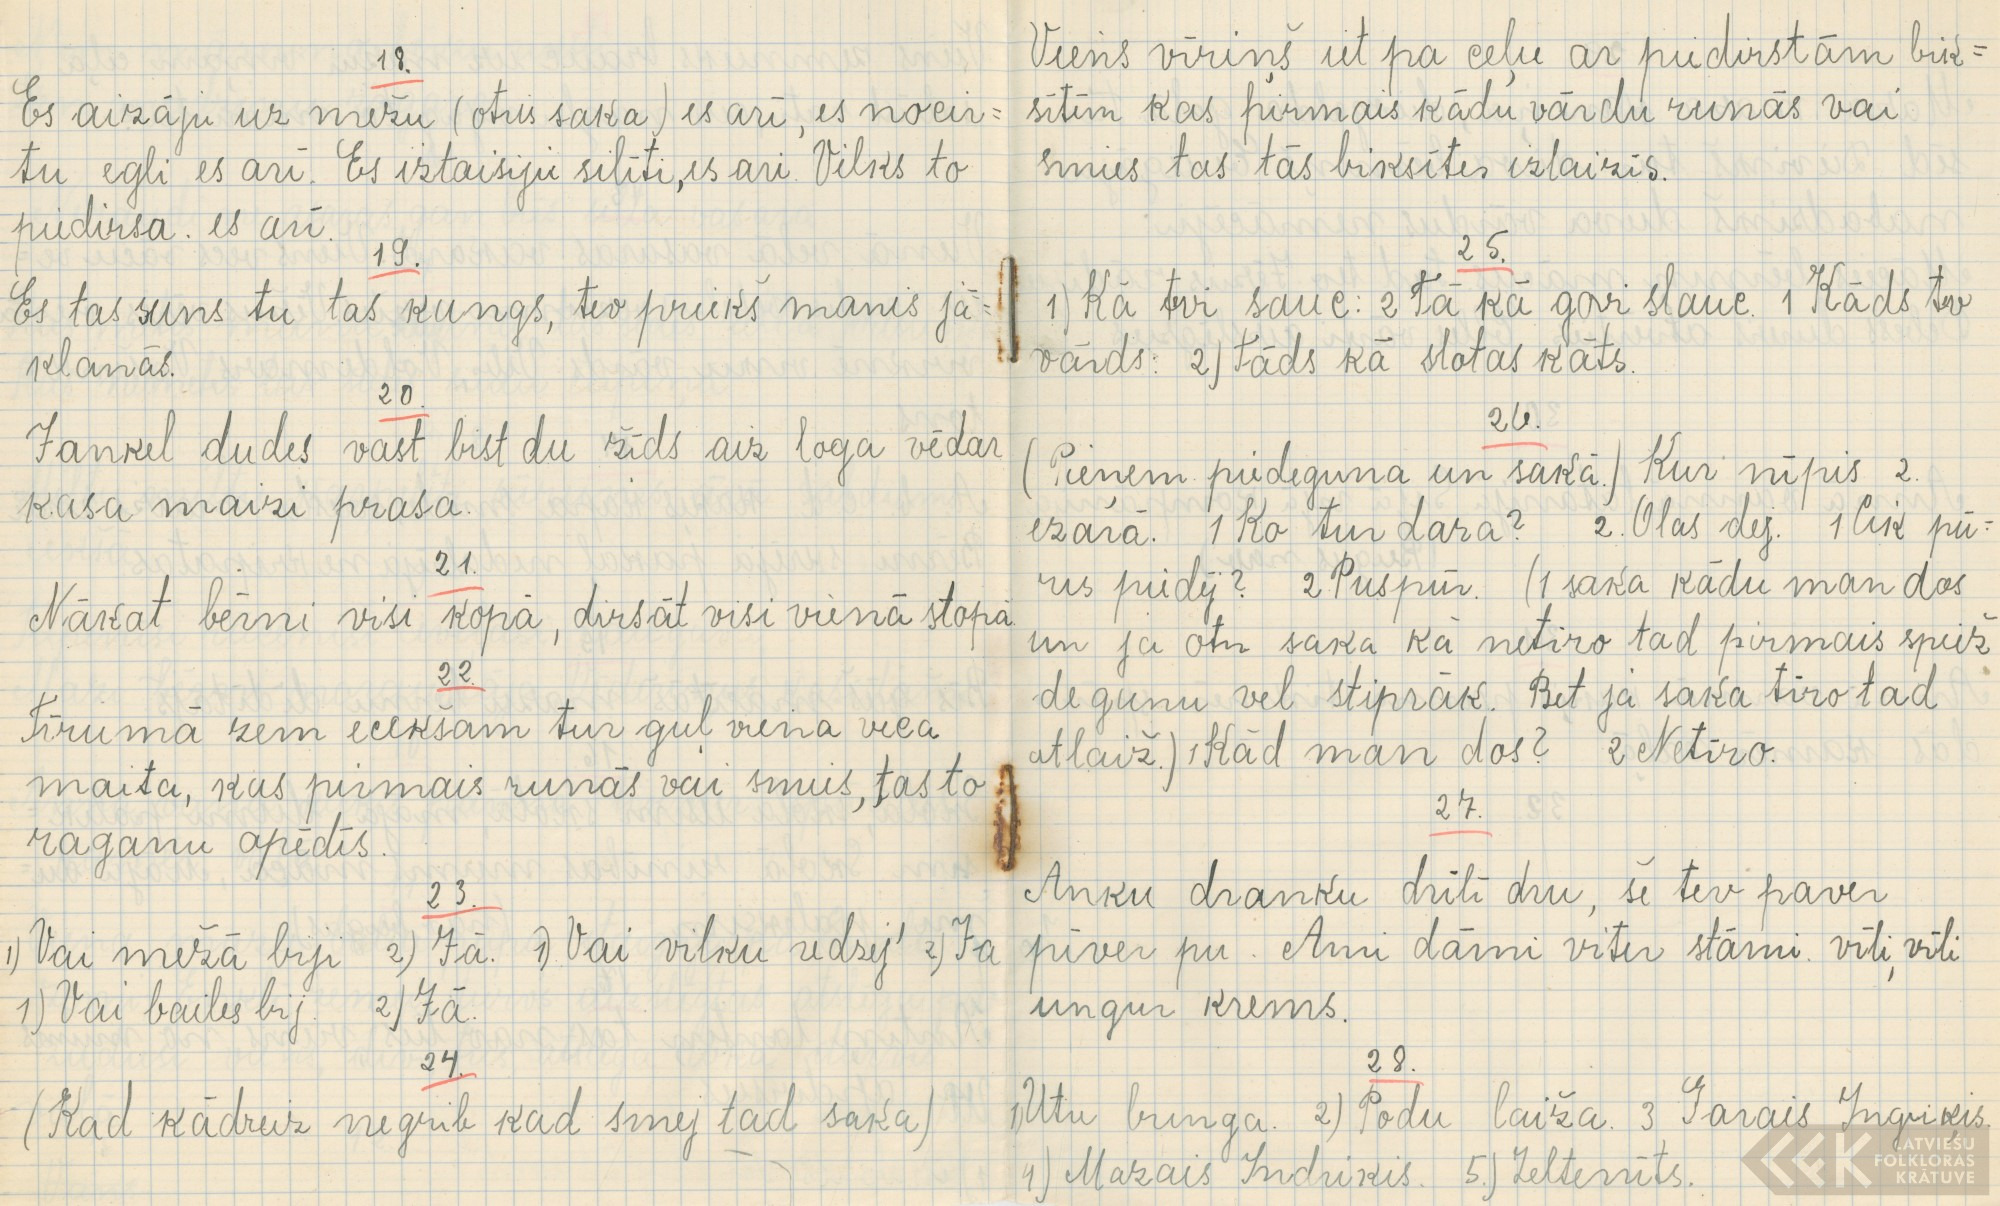 18.
Es aizāju uz mežu (otris saka) es arī, es nocir=
tu egli es arī. Es iztaisiju silīti, es ari. Vilks to
piedirsa. es arī.
19.
Es tas suns tu tas kungs, tev priekš manis jā=
klanās.
20.
Jankel dudes vast bist du žīds aiz loga vēdar
kasa maizi prasa.
21.
Nākat bērni visi kopā, dirsāt visi vienā stopā
22.
Tīrumā zem ecekšam tur guļ viena veca
maita, kas pirmais runās vai smies, tas to
raganu apēdīs.
23.
1) Vai mežā biji 2) Jā. 1) Vai vilku redzej' 2) Ja
1) Vai bailes bij. 2) Jā.
24.
(Kad kādreiz negrib kad smej tad saka)
Viens vīriņš iet pa ceļu ar piedirstām bik=
sītēm kas pirmais kādu vārdu runās vai
smies tas tās biksītes izlaizīs.
25.
1) Kā tevi sauc: 2 Tā kā govi slauc. 1 Kāds tev
vārds: 2) Tāds kā slotas kāts.
26.
(Pieņem piedeguna un sakā.) Kur nīpis 2.
ezarā. 1 Ko tur dara? 2. Olas dej. 1 Cik pū=
rus piedēj? 2 Puspūr. (1 saka kādu man dos
un ja otr saka kā netīro tad pirmais spiež
degunu vel stiprāk. Bet ja saka tīro tad
atlaiž.) 1 Kād man dos? 2 Netīro.
27.
Anku dranku drīlī dru, še tev paver
pīver pu. Ami dāmi viter stāmi. vīli, vīli
ungur krems.
28.
1) Utu bunga. 2) Podu laiža. 3 Garais Ingriķis.
4) Mazais Indrikis. 5.) Zeltenīts.
LATVIEŠU
FOLKLORAS
KRĀTUVE